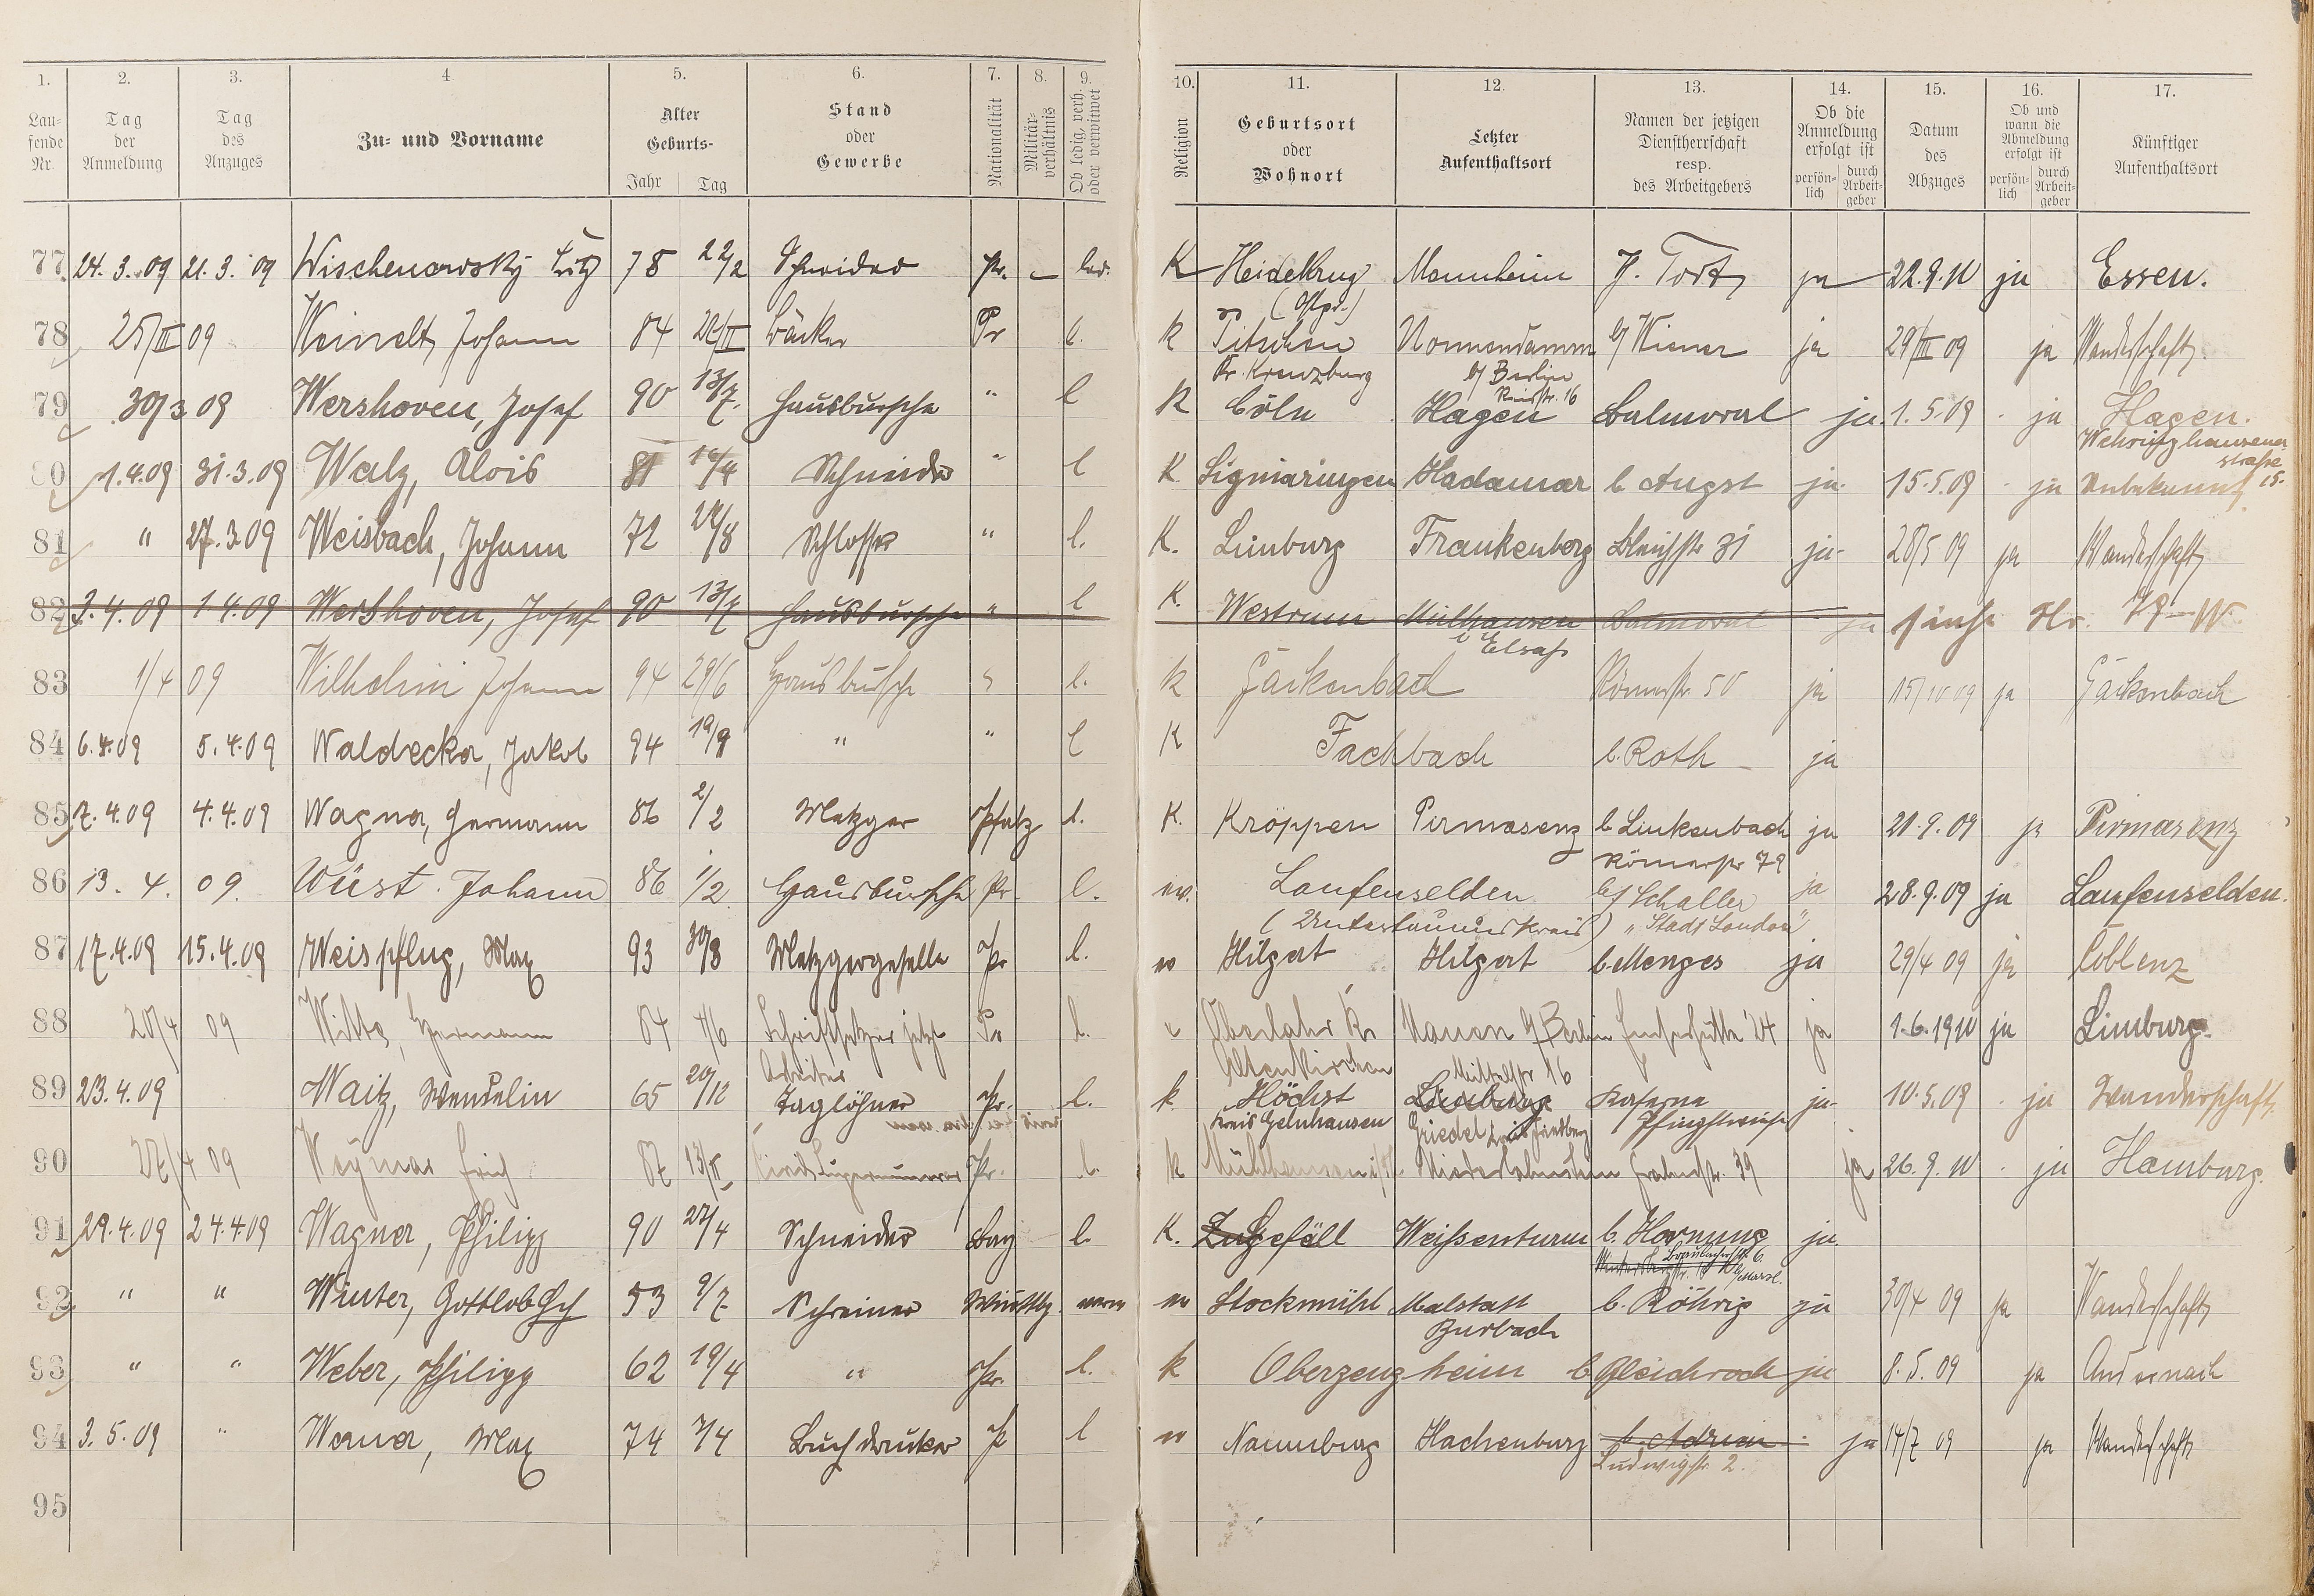 1. 2. 3. 4. 5. 6. 7. 8. 9. 10. 11. 12. 13. 14. 15. 16. 17.
Lau-
fende
Nr.
Tag
der
Anmeldung
Tag
des
Anzuges
Zu- und Vorname
Alter
Geburts-
Jahr Tag
Stand
oder
Gewerbe
Nationalität
Militär-
verhältnis
Ob ledig, verh.
oder verwitwet
Religion
Geburtsort
oder
Wohnort
Letzter
Aufenthaltsort
Namen der jetzigen
Dienstherrschaft
resp.
des Arbeitgebers
Ob die
Anmeldung
erfolgt ist
persön-
lich
durch
Arbeit-
geber
Datum
des
Abzuges
Ob und
wann die
Abmeldung
erfolgt ist
persön-
lich
durch
Arbeit-
geber
Künftiger
Aufenthaltsort
77 24.3.09 21.3.09 Wischenowsky Fritz 78 22/2 Schneider Pr. – led. K Heidekrug Mannheim ja 22.9.10 ja Essen.
(Ostpr.)
78 25/III 09 Weinelt, Johann 84 Bäcker Pr l. k Pitschen Nonnendamm b/ Wiener ja 29/III 09 ja Wanderschaft.
Kr. Kreuzburg b/ Berlin
79 30/3 09 Wershoven, Josef 90 13/7. Hausbursche " l K Cöln Hagen Balmoral ja. 1.5.09 ja Hagen.
Wehringhausener
straße
15.
80 1.4.09 31.3.09 Walz, Alois 81 Schneider " l K. Sigmaringen Hadamar b Angst ja. 15.5.09 ja Unbekannt
81 " 27.3.09 Weisbach, Johann 72 Schlosser " l. K. Limburg Frankenberg Bleichstr 31 ja 28/5 09 ja Wanderschaft
82 1.4.09 Wershoven, Josef 90 13/7 Hausbursche " l K. Westrum Mülhausen Balmoral ja siehe Nr. 79 – W.
i Elsaß
83 1/4 09 Wilhelmi Johann 94 29/6 Hausbursche l. k Gackenbach Römerstr. 50 ja 15/10 09 ja Gackenbach
84 6.4.09 5.4.09 Waldecker, Jakob 94 19/9 " " l K Fachbach b. Roth – ja
85 7.4.09 4.4.09 Wagner, Hermann 86 2/2 Metzger Pfalz l. K. Kröppen Pirmasenz b Linkenbach ja 20.9.09 ja Pirmasenz
Römerstr 79
86 13.4.09. Wüst. Johann 86 1/2 Hausbursche Pr. l. ev. Laufenselden b/ Schaller ja 28.9.09 ja Laufenselden.
(Untertaunuskreis) "Stadt London"
87 17.4.09 15.4.09 Weispflug, Max 93 30/8 Metzgergeselle Pr l. ev Hilgert Hilgert b. Menges ja 29/4 09 ja Coblenz
88 20/4 09 Witte, Hermann 84 4/6 Schriftsetzer jetzt Pr l. Oberlahr Kr Nauen b/ Berlin Emserhütte 24 ja 1.6.1910 ja Limburg.
Arbeiter Altenkirchen Mittelstr 16
89 23.4.09 Waitz, Wendelin 65 20/12 Taglöhner Pr. l. k. Höchst Limburg Kaserne ja 10.5.09 ja Wanderschaft.
Kreis Gelnhausen Griedel Kreis Friedberg Pfingstwiese
90 27/4 09 Weymar Erich 87 13/II Civil Supernumerar Pr. l. k Niederlahnstein 39 ja 26.9.10 ja Hamburg.
91 29.4.09 24.4.09 Wagner, Philipp 90 27/4 Schneider Bay l. K. Zugefäll Weißenturm b. Hornung ja.
Braubacherstr. 6.
92 " " Winter, Gottlob 53 9/7 Schreiner Württbg. ev Stockmühl Malstatt b. Röhrig ja 30/4 09 ja Wanderschaft
Burbach
93 " " Weber, Philipp 62 19/4 " Pr. l. k Oberzeuzheim b Gleichroch ja 8.5.09 ja Andernach
94 3.5.09 " Werner, Max 74 7/4 Buchdrucker P l ev Naumburg Hachenburg b. Adrian ja 14/7 09 ja Wanderschaft
Ludwigstr 2.
95